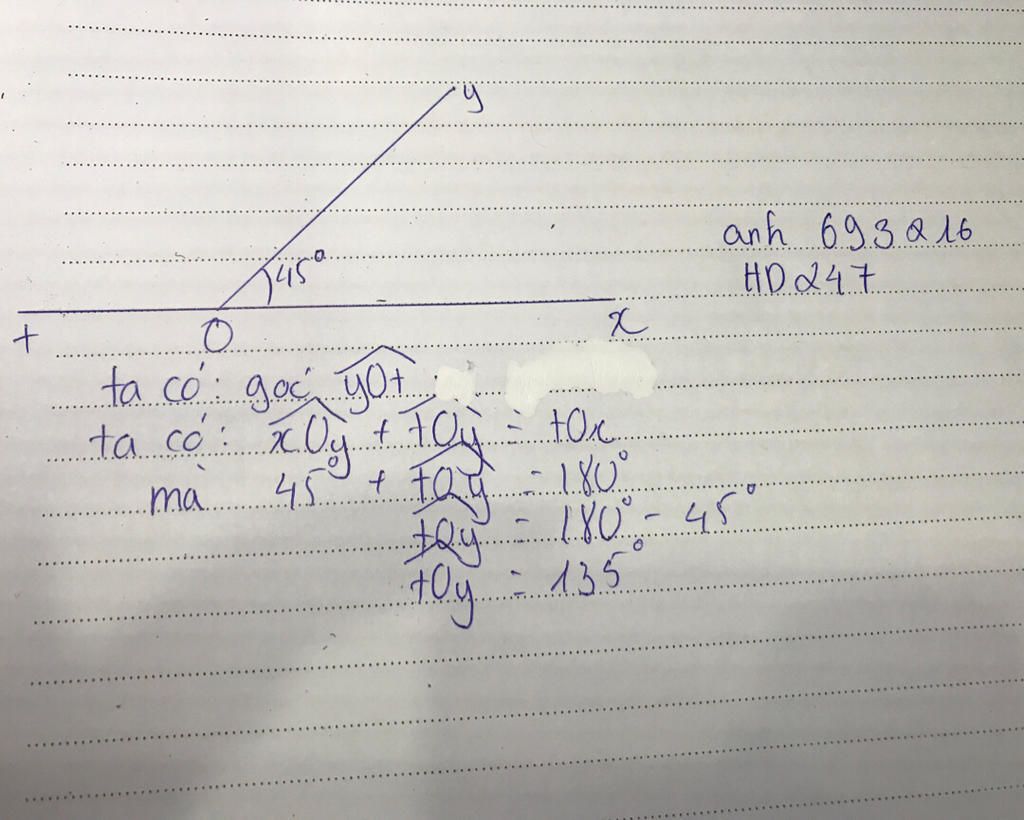 y
45°
anh 693216
HD247
t O x
ta có: góc yOt
ta có: xOy + tOy = tOx
mà 45° + tOy = 180°
tOy = 180° - 45°
tOy = 135°